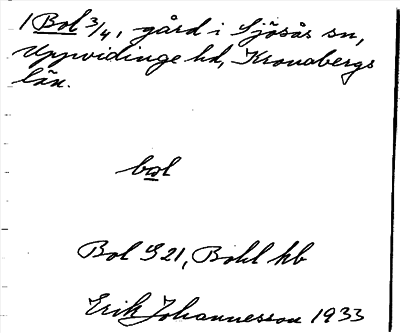 1 Bol 3/4, gård i Sjösås sn,
Uppvidinge hd, Kronobergs
län.
bol
Bol S 21, Bohl kb
Erik Johannesson 1933